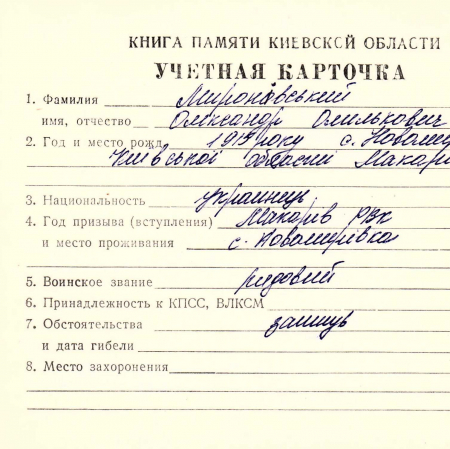 КНИГА ПАМЯТИ КИЕВСКОЙ ОБЛАСТИ
УЧЕТНАЯ КАРТОЧКА
1. Фамилия Мироновський
имя, отчество Олександр Омелькович
2. Год и место рожд. 1919 року с.
Київської області Макарі
3. Национальность українець
4. Год призыва (вступления) Макарів РВК
и место проживания с.
5. Воинское звание рядовий
6. Принадлежность к КПСС, ВЛКСМ
7. Обстоятельства загинув
и дата гибели
8. Место захоронения